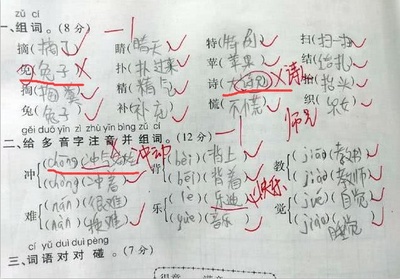 zǔ cí
一、组词。(8分) -1
摘(摘了) 睛(晴天) 特(特别) 扫(扫一扫)
兔(兔子) 扑(扑过来) 苹(苹果) 结(
掏(掏粪) 精(精气) 诗( 诗 抬(抬头)
兔(兔子) 补(补充) 慌(不慌) 织(
gěi duō yīn zì zhù yīn bìng zǔ cí
二、给多音字注音并组词。(12分) -1
冲 (chōng)( 冲动 背 (bēi)(背上) 教 (jiāo)(教书)
(chòng)(冲着) (bēi)(背着) (jiào)(教师)
难 (nán)(很难) 乐 (lè)(乐迪) 快乐 觉 (jué)(自觉)
(nán)( 难) (yuè)(音乐) (jiào)(睡觉)
cí yǔ duì duì pèng
三、词语对对碰。(7分)